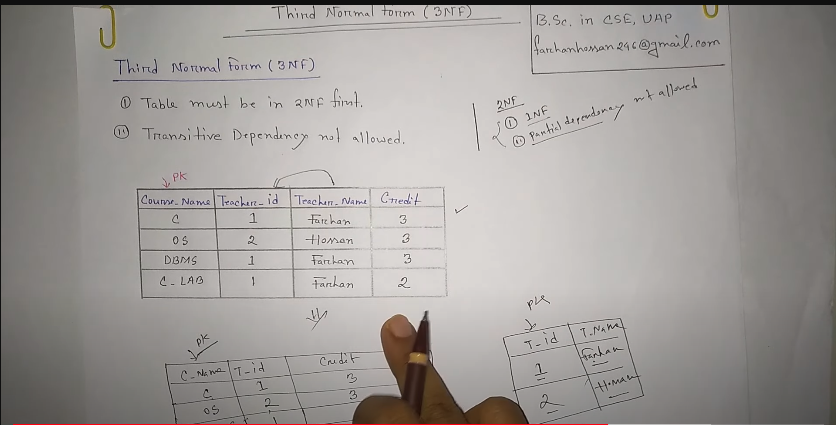 Third Normal form (3NF)
B.Sc. in CSE, UAP
farhanhossan246@gmail.com
Third Normal Form (3NF)
① Table must be in 2NF first.
② Transitive Dependency not allowed.
2NF
① 1NF
② partial dependency not allowed
PK
Course_Name Teacher_id Teacher_Name Credit
C 1 Farhan 3
OS 2 Hossan 3
DBMS 1 Farhan 3
C-LAB 1 Farhan 2
PK
C-Name T-id Credit
C 1 3
OS 2 3
1
PK
T-id T-Name
1 Farhan
2 Hossan